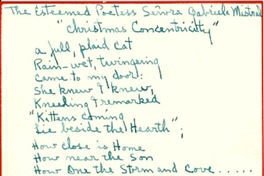 The Esteemed Poetess Señora Gabriela Mistral
"Christmas Concentricity"
a full, plaid cat
Rain-wet, twingeing
Came to my door:
She knew I knew,
Kneeling I remarked
"Kittens coming
Lie beside the Hearth";
How close is Home
How near the Son
How One the Storm and Cove .....